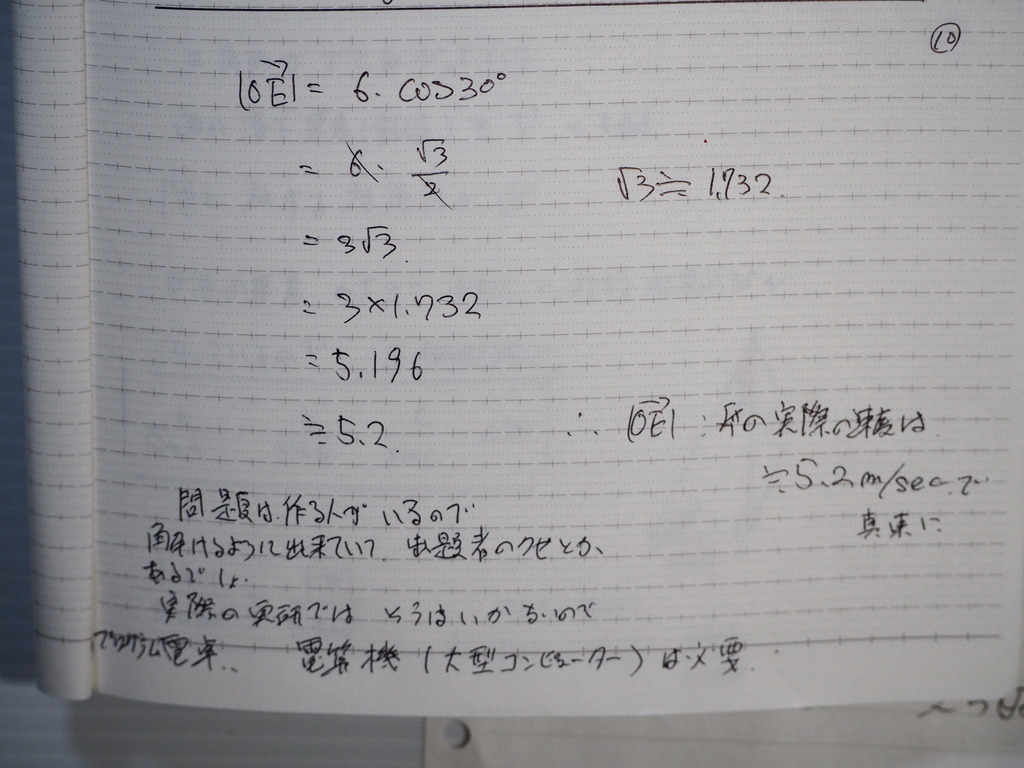 ⑩
|OE→| = 6・cos30°
= 6・√3/2
√3≒1.732
= 3√3
= 3×1.732
= 5.196
≒5.2
∴ |OE→| : の実際の速度は
≒5.2m/secで
真東に
問題は作る人がいるので
解けるように出来ていて 出題者のクセとか、
あるでしょ.
実際の実研では そうはいかないので
電卓.. 電算機(大型コンピューター)は必要.